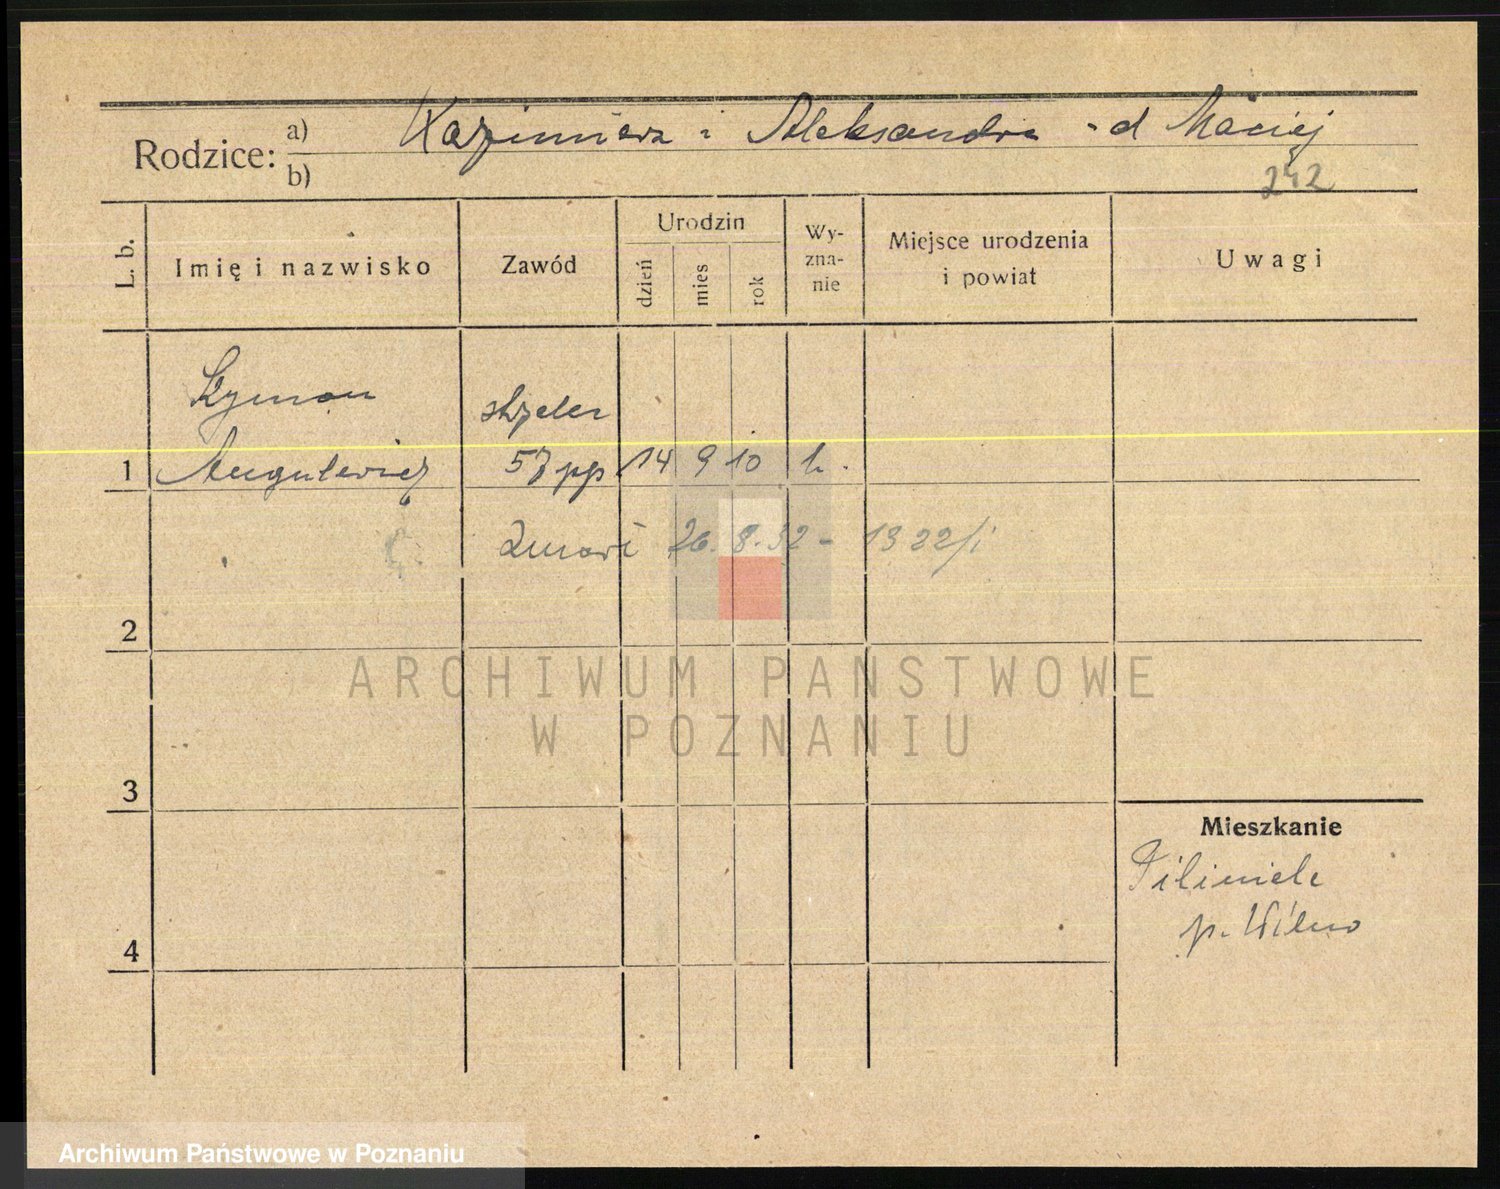 Rodzice: a) Kazimierz i Aleksandra - d Maciej
b)
242
L. b.
Imię i nazwisko
Zawód
Urodzin
dzień
mies
rok
Wy-
zna-
nie
Miejsce urodzenia
i powiat
Uwagi
Szymon
strzelec
1 57 pp 14 9 10
Zmarł 26. 8. 32 - 1322/i
2
3
Mieszkanie
p. Wilno
4
ARCHIWUM PAŃSTWOWE
W POZNANIU
Archiwum Państwowe w Poznaniu